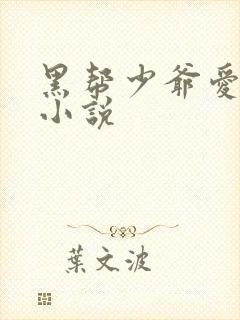 黑帮少爷愛
小説
葉文波